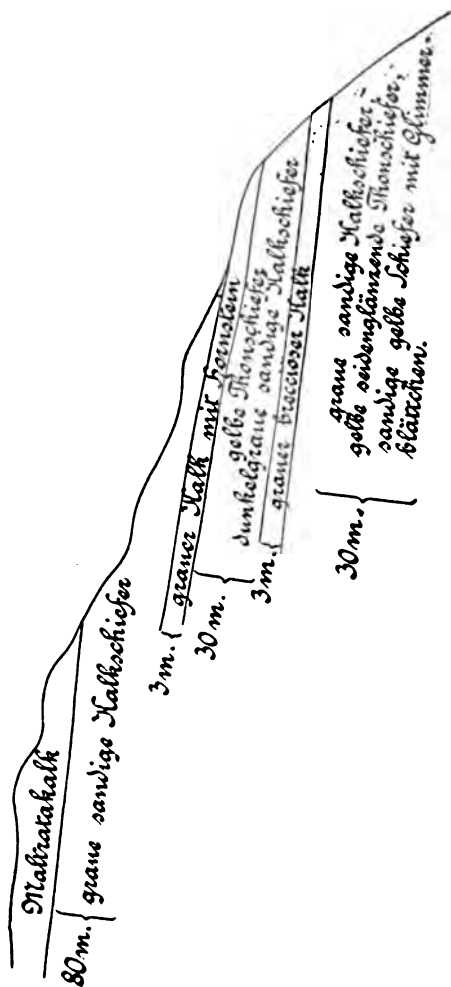 Maltratakalk
80 m. { graue sandige Kalkschiefer
3 m. { grauer Kalk mit Hornstein
30 m. { gelbe Thonschiefer
dunkelgraue sandige Kalkschiefer
3 m. { grauer brecciöser Kalk
30 m. { graue sandige Kalkschiefer,
gelbe seidenglänzende Thonschiefer,
sandige gelbe Schiefer mit Glimmer-
blättchen.